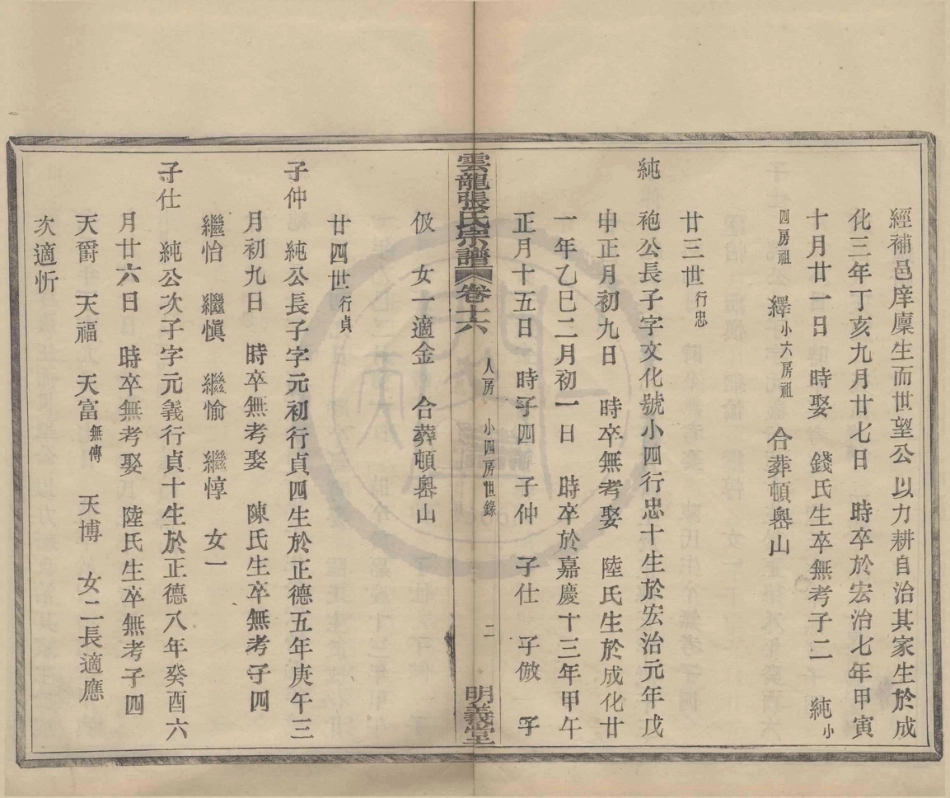 經補邑庠廩生而世望公以力耕自治其家生於成
化三年丁亥九月廿七日 時卒於宏治七年甲寅
十月廿一日 時娶 錢氏生卒無考子二 純小
四房祖 繹小六房祖 合葬頓嶴山
廿三世行忠
純 袍公長子字文化號小四行忠十生於宏治元年戊
申正月初九日 時卒無考娶 陸氏生於成化廿
一年乙巳二月初一日 時卒於嘉慶十三年甲午
正月十五日 時子四 子仲 子仕 子倣 子
伋 女一適金 合葬頓嶴山
雲龍張氏宗譜 卷十六 人房 小四房世錄 二 明義堂
廿四世行貞
子仲 純公長子字元初行貞四生於正德五年庚午三
月初九日 時卒無考娶 陳氏生卒無考子四
繼怡 繼愼 繼愉 繼惇 女一
子仕 純公次子字元義行貞十生於正德八年癸酉六
月廿六日 時卒無考娶 陸氏生卒無考子四
天爵 天福 天富無傳 天博 女二長適應
次適忻